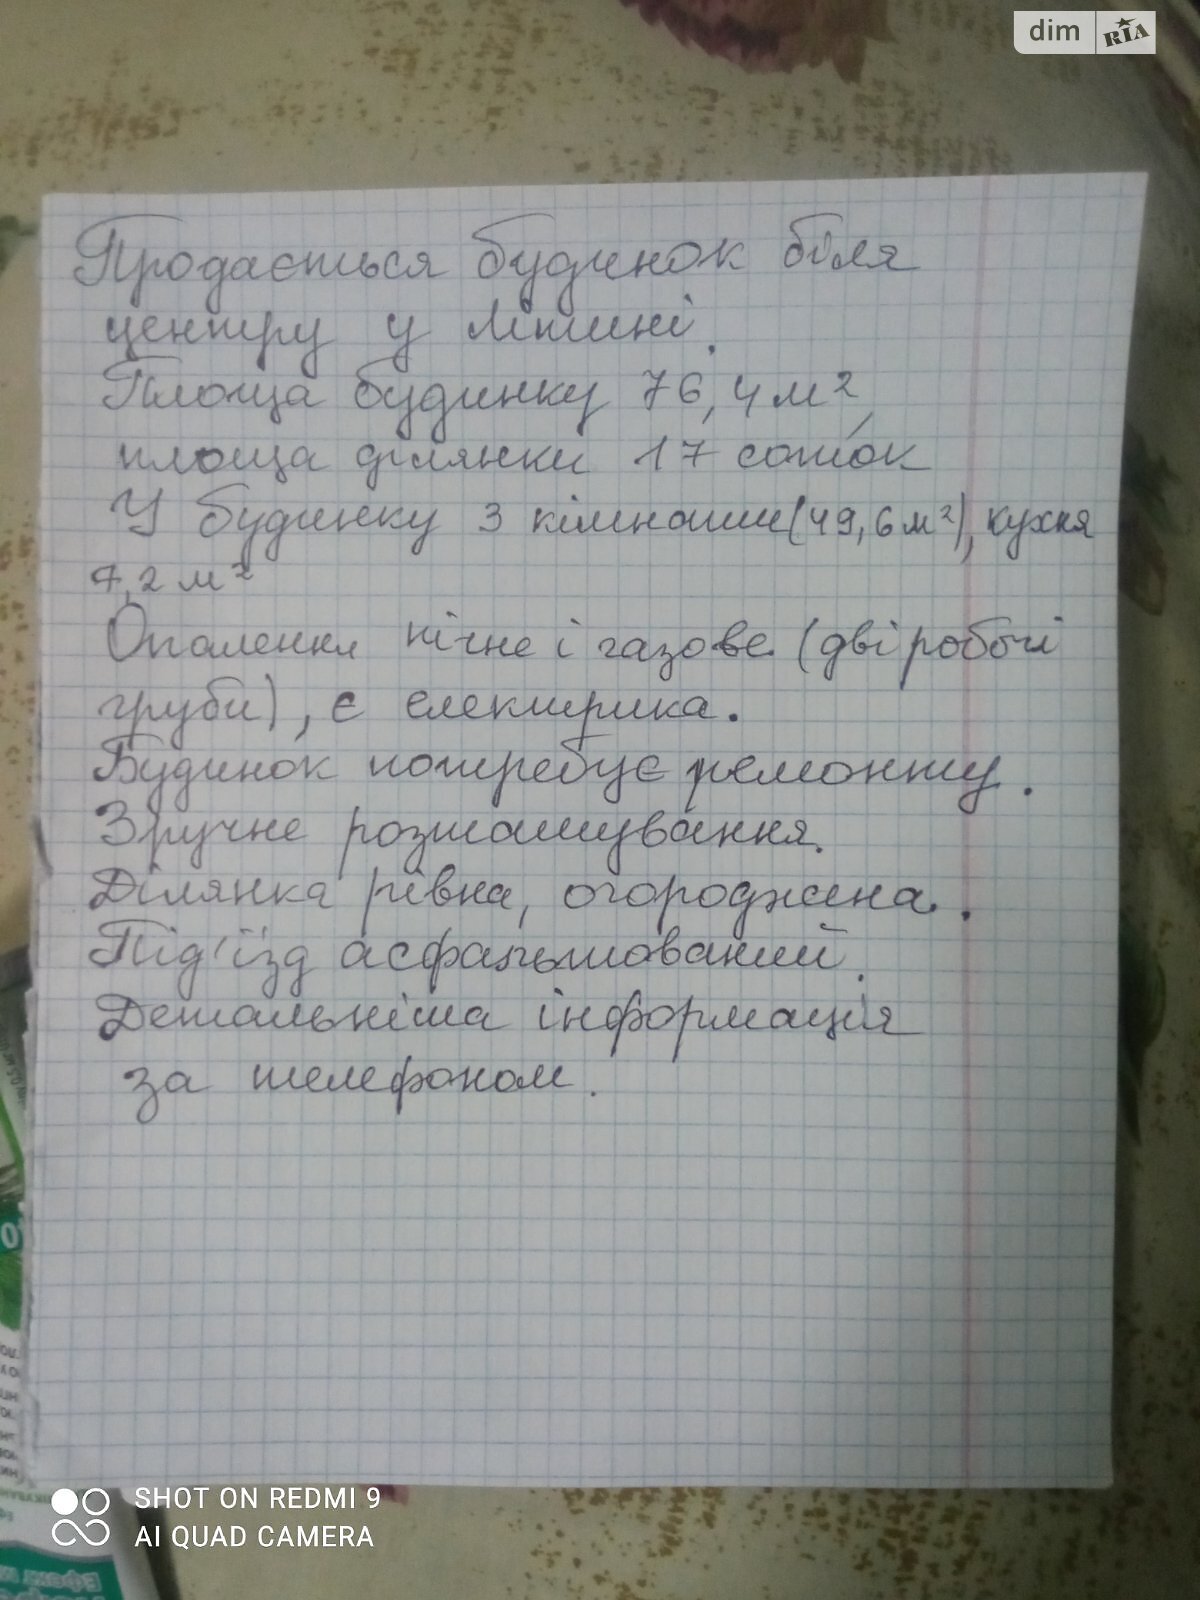 dim RIA
Продається будинок біля
центру у Літині.
Площа будинку 76,4 м²,
площа ділянки 17 соток
У будинку 3 кімнати (49,6 м²), кухня
7,2 м²
Опалення пічне і газове (дві робочі
груби), є електрика.
Будинок потребує ремонту.
Зручне розташування.
Ділянка рівна, огороджена.
Під'їзд асфальтований.
Детальніша інформація
за телефоном.
SHOT ON REDMI 9
AI QUAD CAMERA